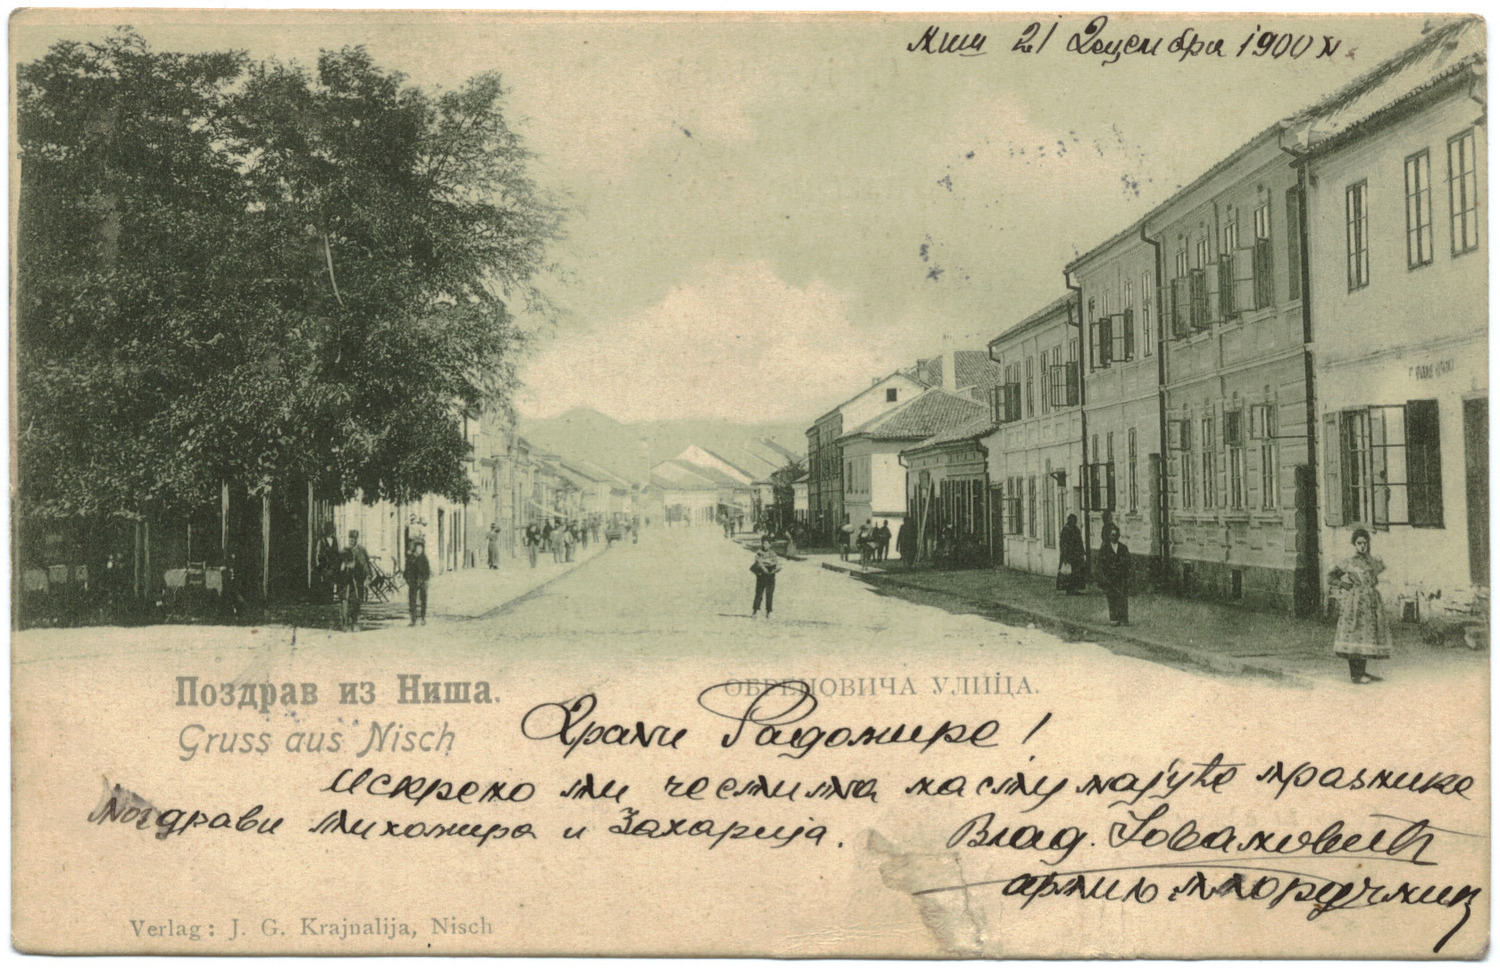 Ниш 21 Децембра 1900 г.
Поздрав из Ниша.
ОБРЕНОВИЧА УЛИЦА.
Gruss aus Nisch
Драги Радомире!
Искрено ти честита наступајуће празнике
Поздрави Тихомира и Захарија.
Влад. Јовановић
артиљ. поручник
Verlag: J. G. Krajnalija, Nisch